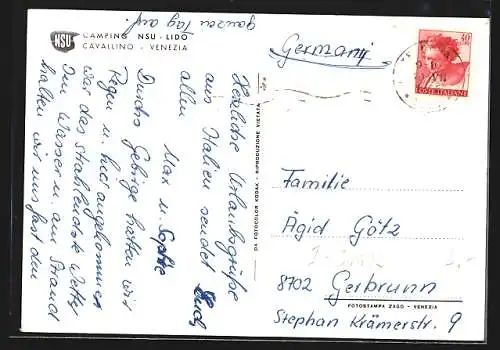 NSU
CAMPING NSU - LIDO
CAVALLINO - VENEZIA
ganzen Tag auf.
Herzliche Urlaubsgrüße
aus Italien sendet Euch
allen
Max u. Sophie
Durchs Gebirge hatten wir
Regen u. hier angekommen
war das strahlendste Wetter
Im Wasser u. am Strand
halten wir uns fast den
DA FOTOCOLOR KODAK - RIPRODUZIONE VIETATA
Germany
POSTE ITALIANE
Familie
Ägid Götz
8702 Gerbrunn
FOTOSTAMPA ZAGO - VENEZIA
Stephan Krämerstr. 9